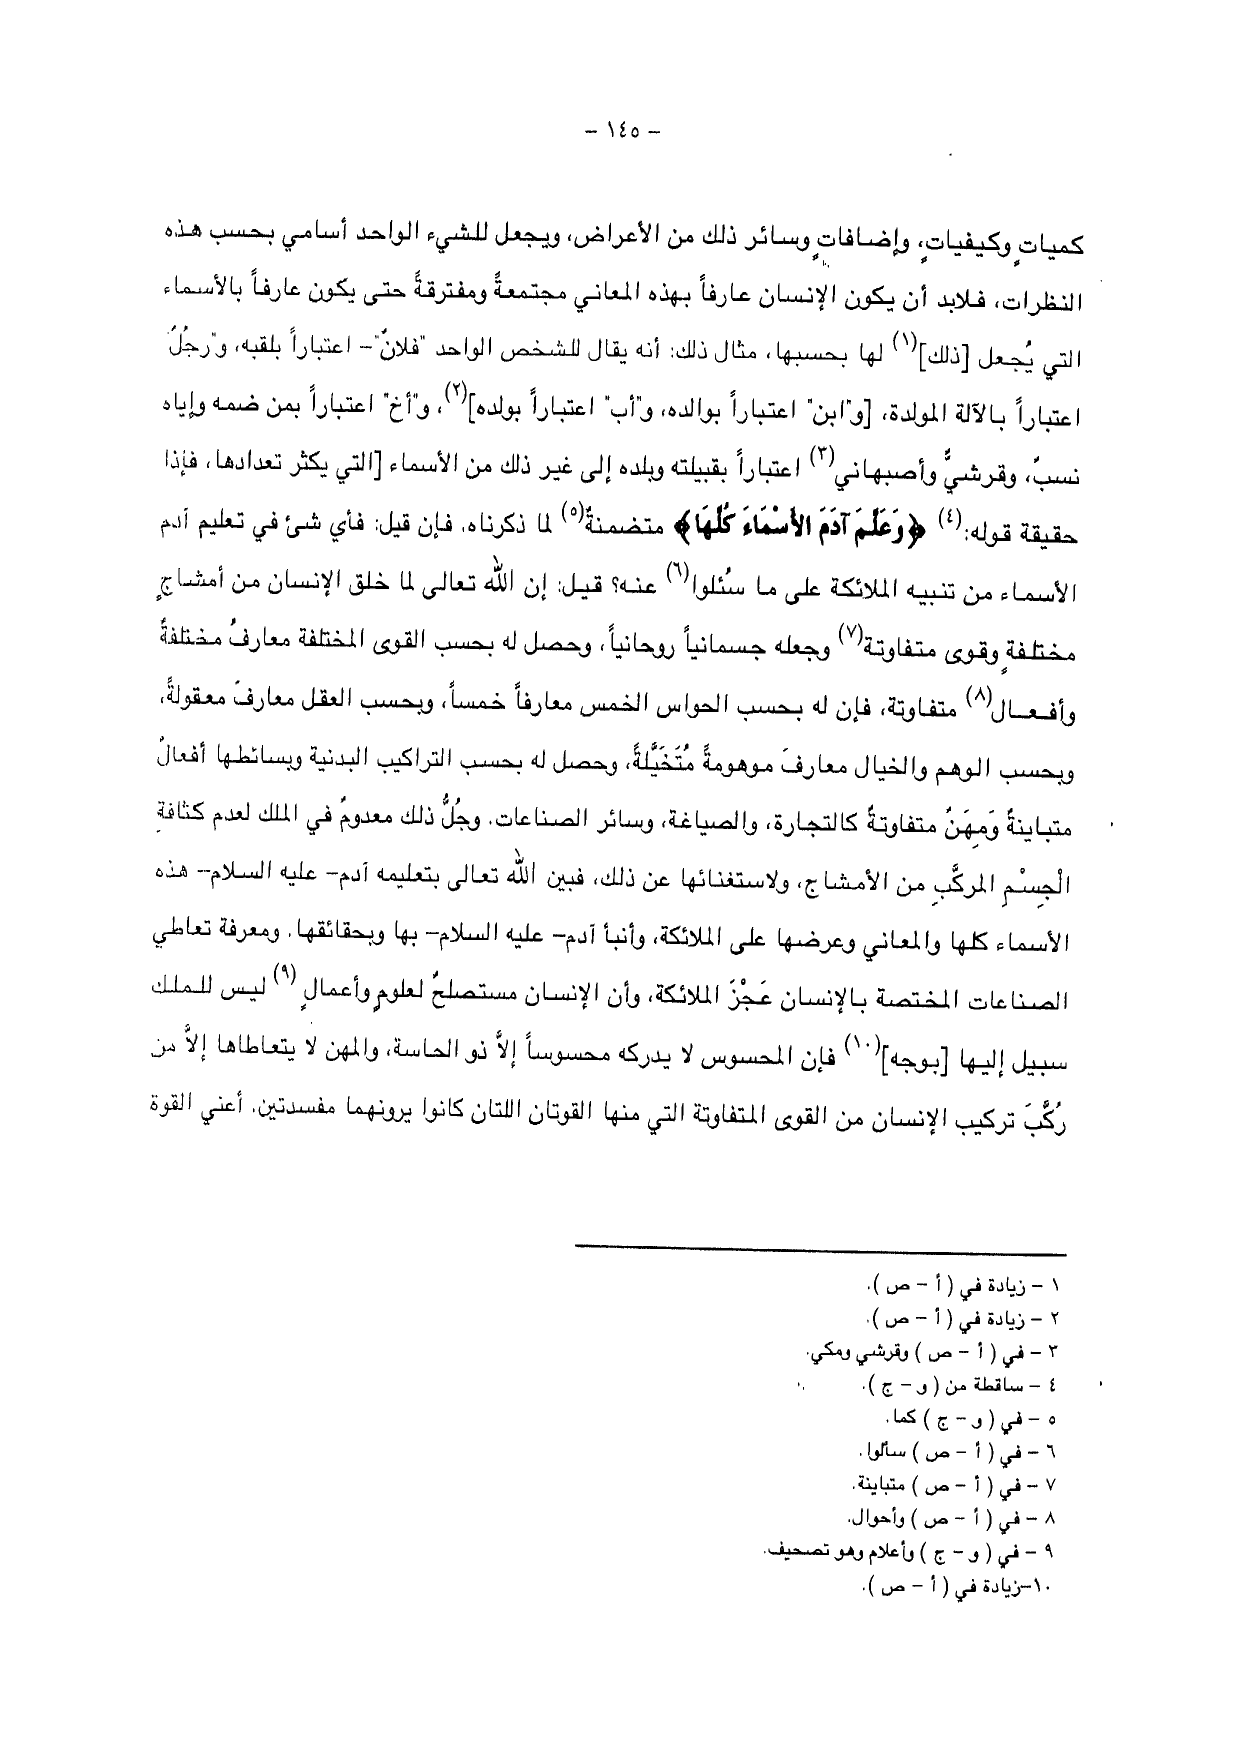 - ١٤٥ -
كمياتٍ وكيفياتٍ، وإضافاتٍ وسائر ذلك من الأعراض، ويجعل للشيء الواحد أسامي بحسب هذه
النظرات، فلابد أن يكون الإنسان عارفاً بهذه المعاني مجتمعةً ومفترقةً حتى يكون عارفاً بالأسماء
التي يُجعل [ذلك](١) لها بحسبها، مثال ذلك: أنه يقال للشخص الواحد "فلانٌ"- اعتباراً بلقبه، و"رجُلٌ"
اعتباراً بالآلة المولدة، [و"ابن" اعتباراً بوالده، و"أب" اعتباراً بولده](٢)، و"أخ" اعتباراً بمن ضمه وإياه
نسبٌ، وقرشيٌّ وأصبهاني(٣) اعتباراً بقبيلته وبلده إلى غير ذلك من الأسماء [التي يكثر تعدادها، فإذا
حقيقة قوله:(٤) ﴿وَعَلَّمَ آدَمَ الأَسْمَاءَ كُلَّهَا﴾ متضمنةٌ(٥) لما ذكرناه، فإن قيل: فأي شئ في تعليم آدم
الأسماء من تنبيه الملائكة على ما سُئلوا(٦) عنه؟ قيل: إن الله تعالى لما خلق الإنسان من أمشاجٍ
مختلفةٍ وقوى متفاوتة(٧) وجعله جسمانياً روحانياً، وحصل له بحسب القوى المختلفة معارفٌ مختلفةٌ
وأفعال(٨) متفاوتة، فإن له بحسب الحواس الخمس معارفاً خمساً، وبحسب العقل معارفَ معقولةً،
وبحسب الوهم والخيال معارفَ موهومةً مُتَخَيَّلةً، وحصل له بحسب التراكيب البدنية وبسائطها أفعالٌ
متباينةٌ وَمِهَنٌ متفاوتةٌ كالتجارة، والصياغة، وسائر الصناعات. وجُلُّ ذلك معدومٌ في الملك لعدم كثافة
الجسْمِ المركَّبِ من الأمشاج، ولاستغنائها عن ذلك، فبين الله تعالى بتعليمه آدم- عليه السلام-- هذه
الأسماء كلها والمعاني وعرضها على الملائكة، وأنبأ آدم- عليه السلام- بها وبحقائقها. ومعرفة تعاطي
الصناعات المختصة بالإنسان عَجْزَ الملائكة، وأن الإنسان مستصلحٌ لعلومٍ وأعمالٍ(٩) ليس للملك
سبيل إليها [بوجه](١٠) فإن المحسوس لا يدركه محسوساً إلاَّ ذو الحاسة، والمهن لا يتعاطاها إلاَّ من
رُكِّبَ تركيب الإنسان من القوى المتفاوتة التي منها القوتان اللتان كانوا يرونهما مفسدتين. أعني القوة
١ - زيادة في ( أ - ص ).
٢ - زيادة في ( أ - ص ).
٣ - في ( أ - ص ) وقرشي ومكي.
٤ - ساقطة من ( و - ج ).
٥ - في ( و - ج ) كما.
٦ - في ( أ - ص ) سألوا.
٧ - في ( أ - ص ) متباينة.
٨ - في ( أ - ص ) وأحوال.
٩ - في ( و - ج ) وأعلام وهو تصحيف.
١٠-زيادة في ( أ - ص ).